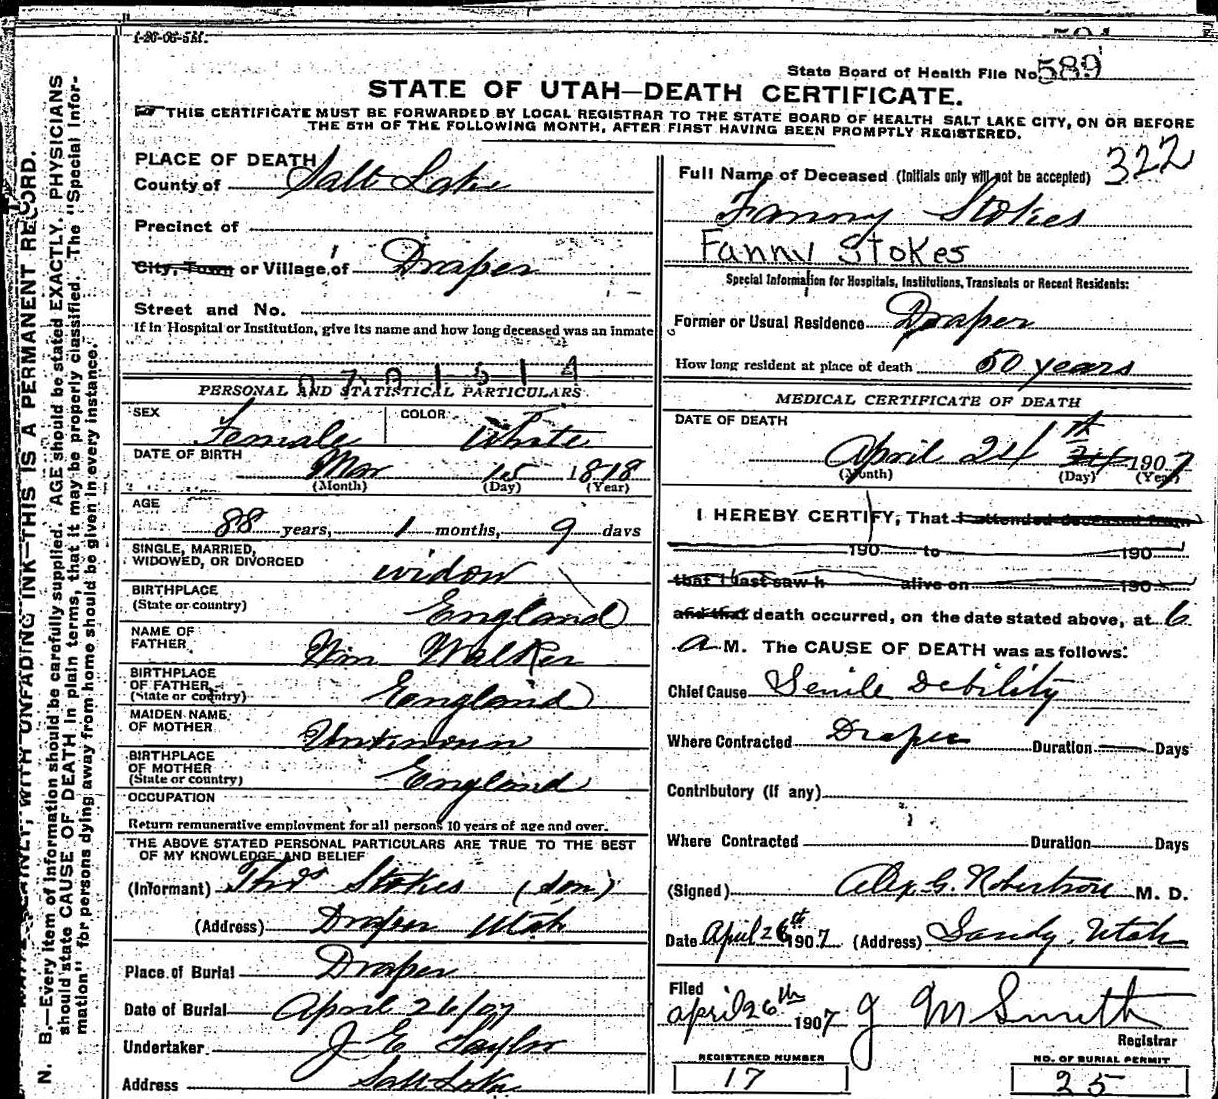 1-26-06-5M.
State Board of Health File No. 589
STATE OF UTAH—DEATH CERTIFICATE.
THIS CERTIFICATE MUST BE FORWARDED BY LOCAL REGISTRAR TO THE STATE BOARD OF HEALTH SALT LAKE CITY, ON OR BEFORE
THE 5TH OF THE FOLLOWING MONTH, AFTER FIRST HAVING BEEN PROMPTLY REGISTERED.
N. B.—Every item of information should be carefully supplied. AGE should be stated EXACTLY. PHYSICIANS
should state CAUSE OF DEATH in plain terms, that it may be properly classified. The "Special Infor-
mation" for persons dying away from home should be given in every instance.
WITH UNFADING INK—THIS IS A PERMANENT RECORD.
PLACE OF DEATH
County of Salt Lake
Precinct of
City, Town or Village of Draper
Street and No.
If in Hospital or Institution, give its name and how long deceased was an inmate
0701514
PERSONAL AND STATISTICAL PARTICULARS
SEX Female COLOR White
DATE OF BIRTH Mar 15 1818
(Month) (Day) (Year)
AGE
88 years, 1 months, 9 days
SINGLE, MARRIED,
WIDOWED, OR DIVORCED widow
BIRTHPLACE
(State or country) England
NAME OF
FATHER Wm Walker
BIRTHPLACE
OF FATHER
(State or country) England
MAIDEN NAME
OF MOTHER Unknown
BIRTHPLACE
OF MOTHER
(State or country) England
OCCUPATION
Return remunerative employment for all persons 10 years of age and over.
THE ABOVE STATED PERSONAL PARTICULARS ARE TRUE TO THE BEST
OF MY KNOWLEDGE AND BELIEF
(Informant) Thos Stokes (son)
(Address) Draper Utah
Place of Burial Draper
Date of Burial April 26/07
Undertaker J E Taylor
Address Salt Lake
322
Full Name of Deceased (Initials only will not be accepted)
Fanny Stokes
Fanny Stokes
Special Information for Hospitals, Institutions, Transients or Recent Residents:
Former or Usual Residence Draper
How long resident at place of death 50 years
MEDICAL CERTIFICATE OF DEATH
DATE OF DEATH
April 24 th 24 1907
(Month) (Day) (Year)
I HEREBY CERTIFY, That I attended deceased from
190 to 190
that I last saw h alive on 190
and that death occurred, on the date stated above, at 6
a M. The CAUSE OF DEATH was as follows:
Chief Cause Senile Debility
Where Contracted Draper Duration — Days
Contributory (if any)
Where Contracted Duration Days
(Signed) Alex. G. Robertson M. D.
Date April 26th 1907 (Address) Sandy, Utah
Filed
april 26th 1907 J M Smith
Registrar
REGISTERED NUMBER NO. OF BURIAL PERMIT
17 25